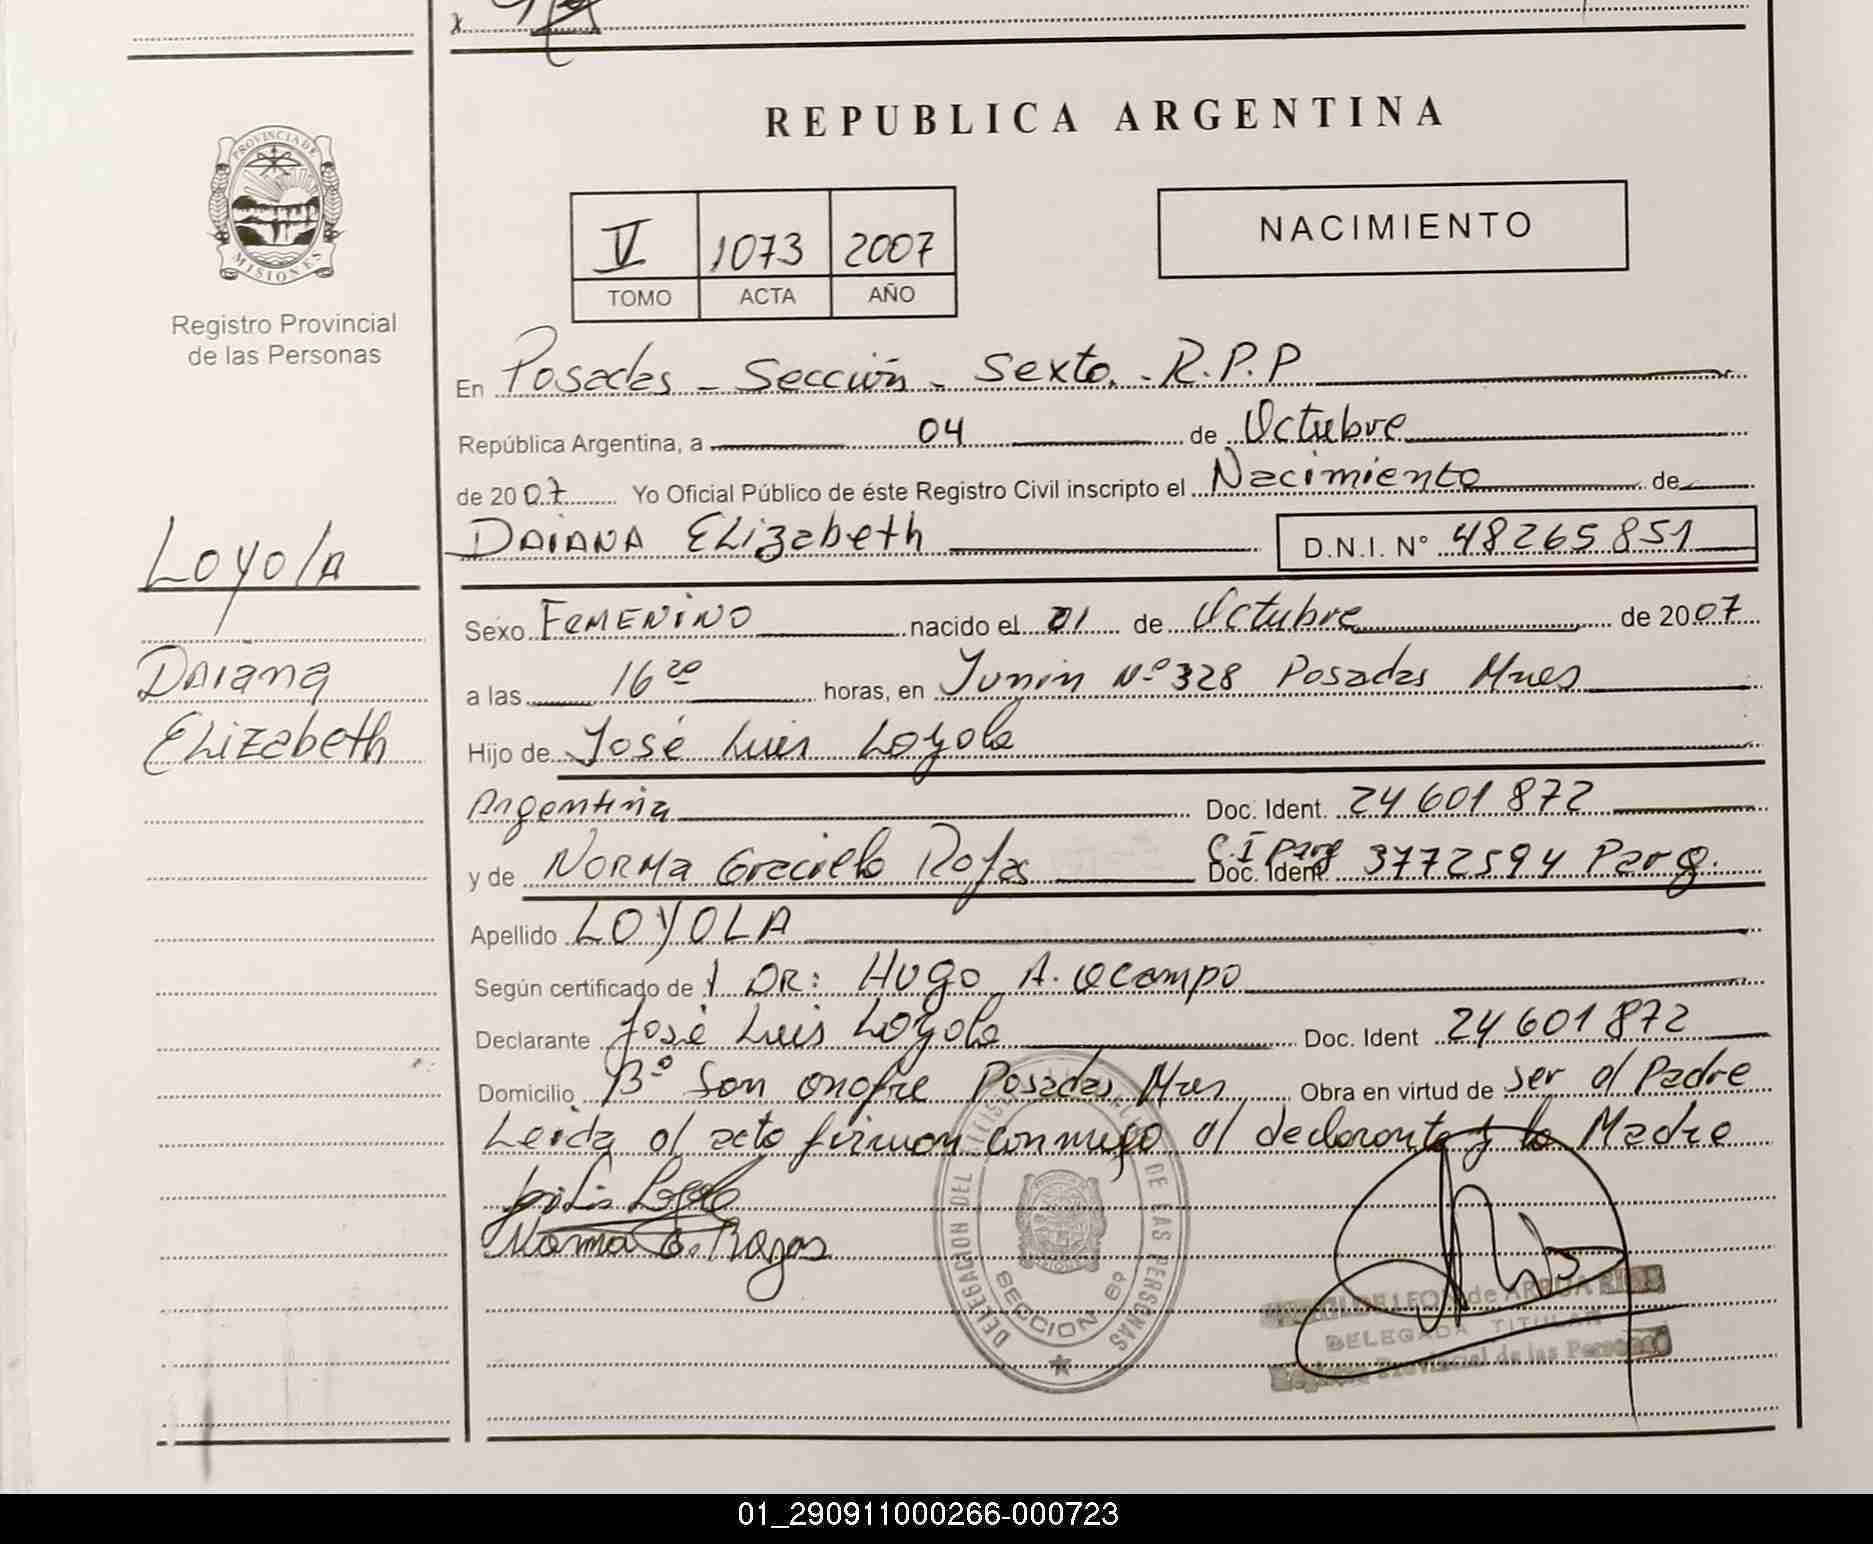 REPUBLICA ARGENTINA
PROVINCIA DE
MISIONES
Registro Provincial
de las Personas
V 1073 2007
TOMO ACTA AÑO
NACIMIENTO
En Posadas - Sección - Sexta - R.P.P
República Argentina, a 04 de Octubre
de 2007 Yo Oficial Público de éste Registro Civil inscripto el Nacimiento de
DAIANA Elizabeth D.N.I. N° 48265851
Loyola
Daiana
Elizabeth
Sexo FEMENINO nacido el 01 de Octubre de 2007
a las 16 horas, en Junin Nº 328 Posadas Mnes
Hijo de José Luis Loyola
Argentina Doc. Ident. 24 601 872
y de NORMA Graciela Rojas C.I Parg Doc. Ident. 3772594 Parg.
Apellido LOYOLA
Según certificado de DR: Hugo A. Ocampo
Declarante José Luis Loyola Doc. Ident 24 601 872
Domicilio Bº San onofre Posadas Mnes Obra en virtud de ser el Padre
Leida el acta firman conmigo el declarante y la Madre
Norma G. Rojas
DELEGACION DEL DE LAS PERSONAS
SECCION 6º
de ARRUA
DELEGADA TITULAR
Registro Provincial de las Personas
01_290911000266-000723